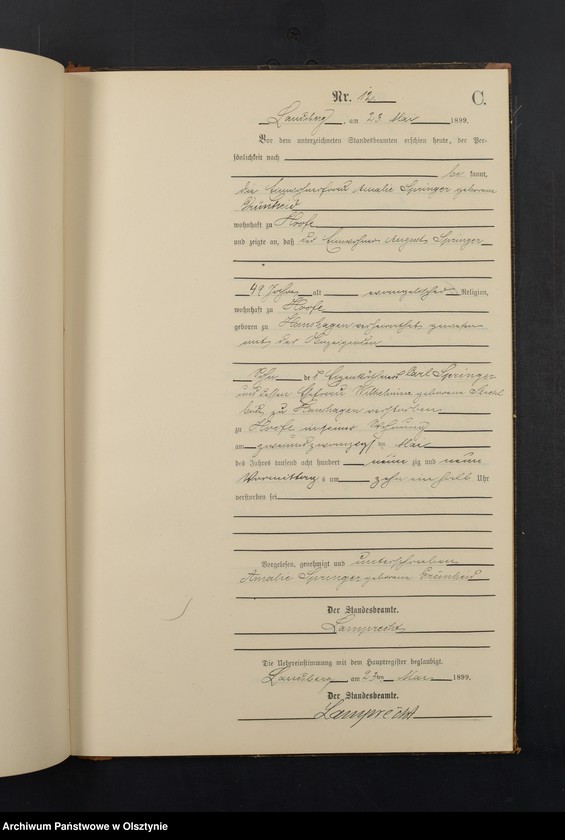 Nr. 12
C.
Landsberg, am 23. Mai 1899.
Vor dem unterzeichneten Standesbeamten erschien heute, der Per-
sönlichkeit nach
be kannt,
die Einwohnerfrau Amalie Springer geborene
Grünheid
wohnhaft zu Hoofe
und zeigte an, daß der Einwohner August Springer
49 Jahre alt evangelischer Religion,
wohnhaft zu Hoofe
geboren zu Hanshagen verheirathet gewesen
mit der Anzeigenden
Sohn des Eigenkäthners Carl Springer
und dessen Ehefrau Wilhelmine geborene
zu Hanshagen verstorben
zu Hoofe in seiner Wohnung
am zweiundzwanzigsten Mai
des Jahres tausend acht hundert neun zig und neun
Vormittags um zehn ein halb Uhr
verstorben sei
Vorgelesen, genehmigt und unterschrieben
Amalie Springer geborene Grünheid
Der Standesbeamte.
Lamprecht
Die Uebereinstimmung mit dem Hauptregister beglaubigt.
Landsberg am 23ten Mai 1899.
Der Standesbeamte.
Lamprecht
Archiwum Państwowe w Olsztynie